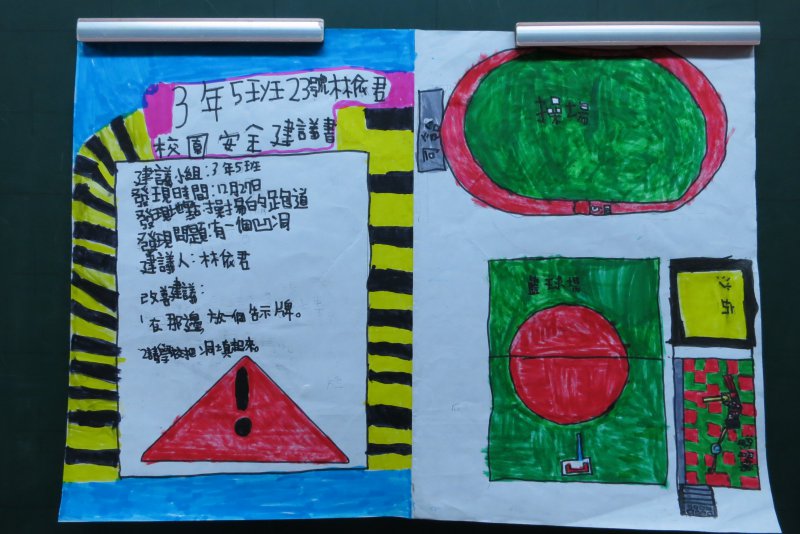 3年5班23號林依君
校園安全建議書
建議小組:3年5班
發現時間:12月27日
發現地點:操場的跑道
發現問題:有一個凹洞
建議人:林依君
改善建議:
1在那邊放一個告示牌。
2請學校把洞填起來。
操場
司令台
籃球場
沙坑